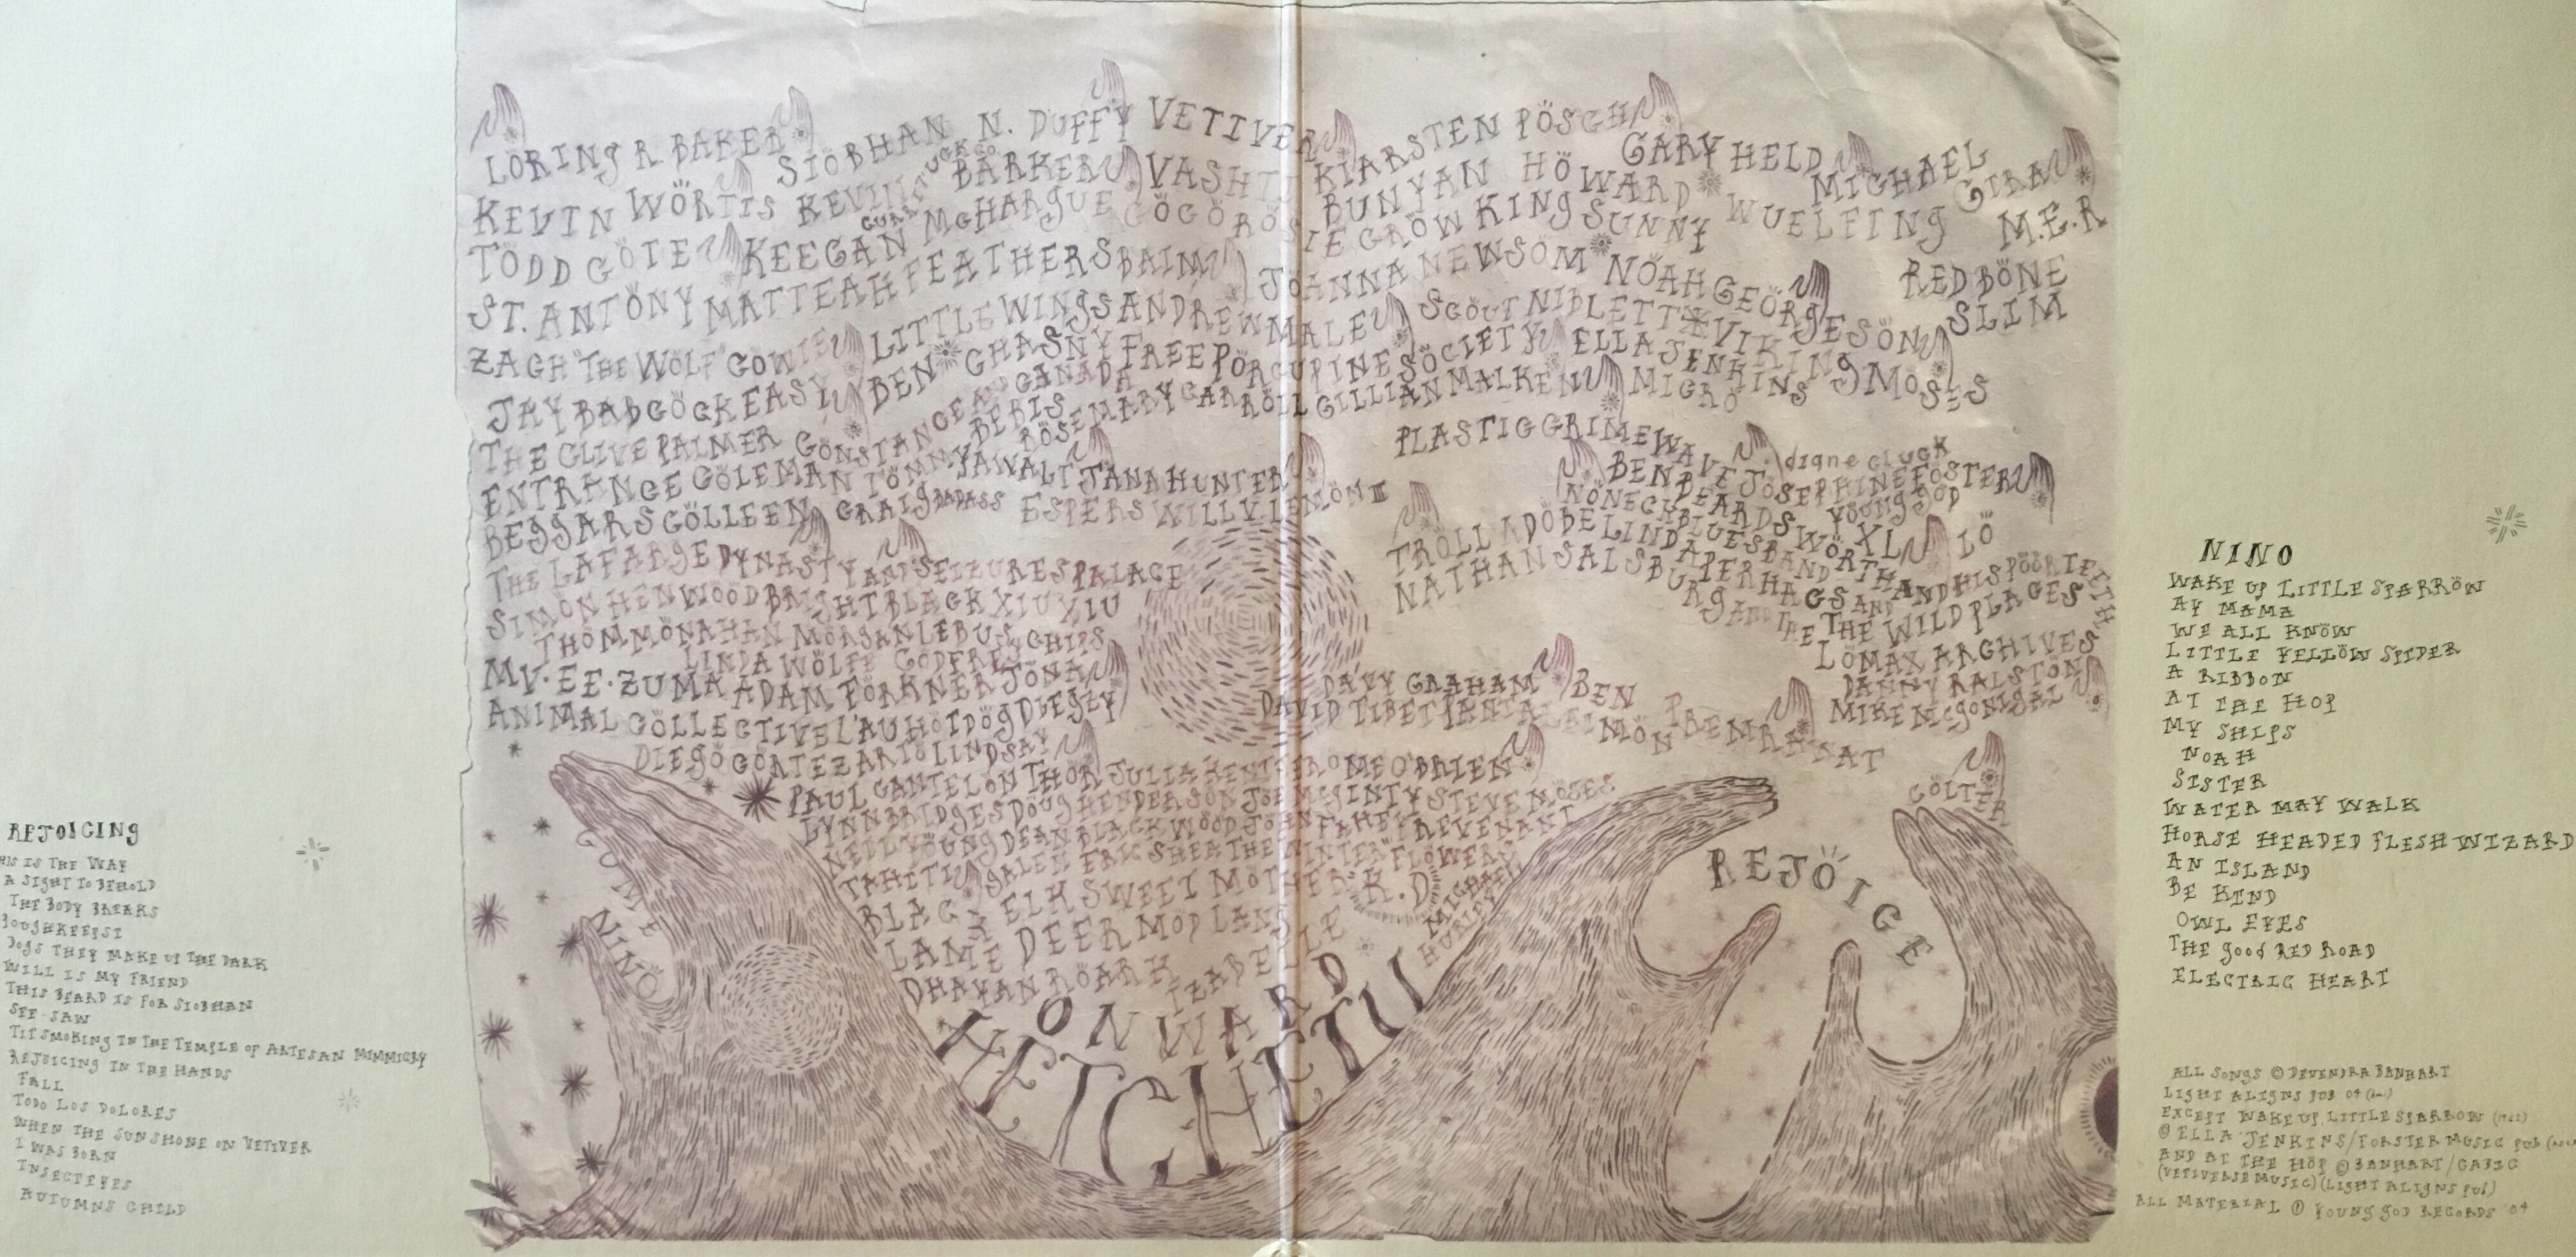 REJOICING
THIS IS THE WAY
A SIGHT TO BEHOLD
THE BODY BREAKS
POUGHKEEPSI
DOGS THEY MAKE UP THE DARK
WILL IS MY FRIEND
THIS BEARD IS FOR SIOBHAN
SEE-SAW
TIT SMOKING IN THE TEMPLE OF ARTESAN MIMMICRY
REJOICING IN THE HANDS
FALL
TODO LOS DOLORES
WHEN THE SUN SHONE ON VETIVER
I WAS BORN
INSECT EYES
AUTUMNS CHILD
LÖRING R. BAKER SIÖBHAN N. DUFFY VETIVER KIARSTEN PÖSCH GARY HELD MICHAEL GIRA
KEVIN WÖRTIS KEVIN BARKER VASHTI BUNYAN HÖWARD WUELFING M.E.R
TÖDD CÖTE KEEGAN McHARGUE CÖCÖRÖSIE CRÖW KING SUNNY RED BÖNE SLIM
ST. ANTÖNY MATTEAH FEATHERS BAIM JÖANNA NEWSÖM NÖAH GEÖRGESÖN
ZACH "THE WÖLF" CÖWIE LITTLE WINGS ANDREW MALE SCÖUT NIBLETT VIKING MÖSES
JAY BABCÖCK EASY BEN CHASNY FREE PÖRCUPINE SÖCIETY ELLA JENKINS
THE CLIVE PALMER CÖNSTANCE AND CANADA RÖSEMARY CARRÖLL GILLIAN MALKEN MICRÖ
ENTRANCE CÖLEMAN TÖMMY BEBIS YAWALT JANA HUNTER PLASTIC CRIMEWAVE diane CLUCK
BEGGARS CÖLLEEN CRAIG BADASS ESPERS WILL V. LEMÖN III BEN BEARDSWÖRTH AND HIS PÖÖR TEETH JÖSEPHINE FÖSTER
THE LAFARGE DYNASTY AND SEIZURES PALACE TRÖLL ADÖBE LINDAPERHACS AND THE WILD PLACES NÖNECKBLUESBAND YÖUNG GÖD XL LÖ
SIMÖN HENWÖÖD BRIGHTBLACK XIU XIU NATHAN SALSBURG AND THE LÖMAX ARCHIVES
THÖM MÖNAHAN MÖRGAN LEBUS CHIPS
LINDA WÖLFE GÖDFREY
MV·EE·ZUMA ADAM FÖRKNER JÖNA DAVY GRAHAM BEN DANNY RALSTÖN
ANIMAL CÖLLECTIVE L'AU HÖTDÖG DIEGZY DAVID TIBET PANTALEIMÖN PREMRAWAT MIKE McGÖNIGAL
DIEGÖ CÖRTEZ ARTÖ LINDSAY
PAUL CANTELÖN THÖR JULIA KENT JERÖME Ö'BRIEN CÖLTER
LYNN BRIDGES DÖUG HENDERSÖN JÖE McGINTY STEVE MÖSES
NEIL YÖUNG DEAN BLACKWÖÖD JÖHN FAHEY REVENANT
TAHETI GALEN ERIC SHEA THE WINTER FLÖWERS
BLACK ELK SWEET MÖTHER K.D MICHAEL HURLEY
LAME DEER MÖD LANG
DHAYAN RÖARK IZABELLE
CÖME NINÖ
ONWARD
HETCHETU
REJÖICE
NINO
WAKE UP LITTLE SPARRÖW
AY MAMA
WE ALL KNÖW
LITTLE YELLÖW SPIDER
A RIBBON
AT THE HOP
MY SHIPS
NOAH
SISTER
WATER MAY WALK
HORSE HEADED FLESH WIZARD
AN ISLAND
BE KIND
OWL EYES
THE good RED ROAD
ELECTRIC HEART
ALL SONGS © DEVENDRA BANHART
LIGHT ALIGNS PUB 04
EXCEPT WAKE UP LITTLE SPARROW
© ELLA JENKINS/FORSTER MUSIC PUB
AND AT THE HOP © BANHART/CABIC
(VETIVERSE MUSIC) (LIGHT ALIGNS PUB)
ALL MATERIAL © YOUNG GOD RECORDS '04